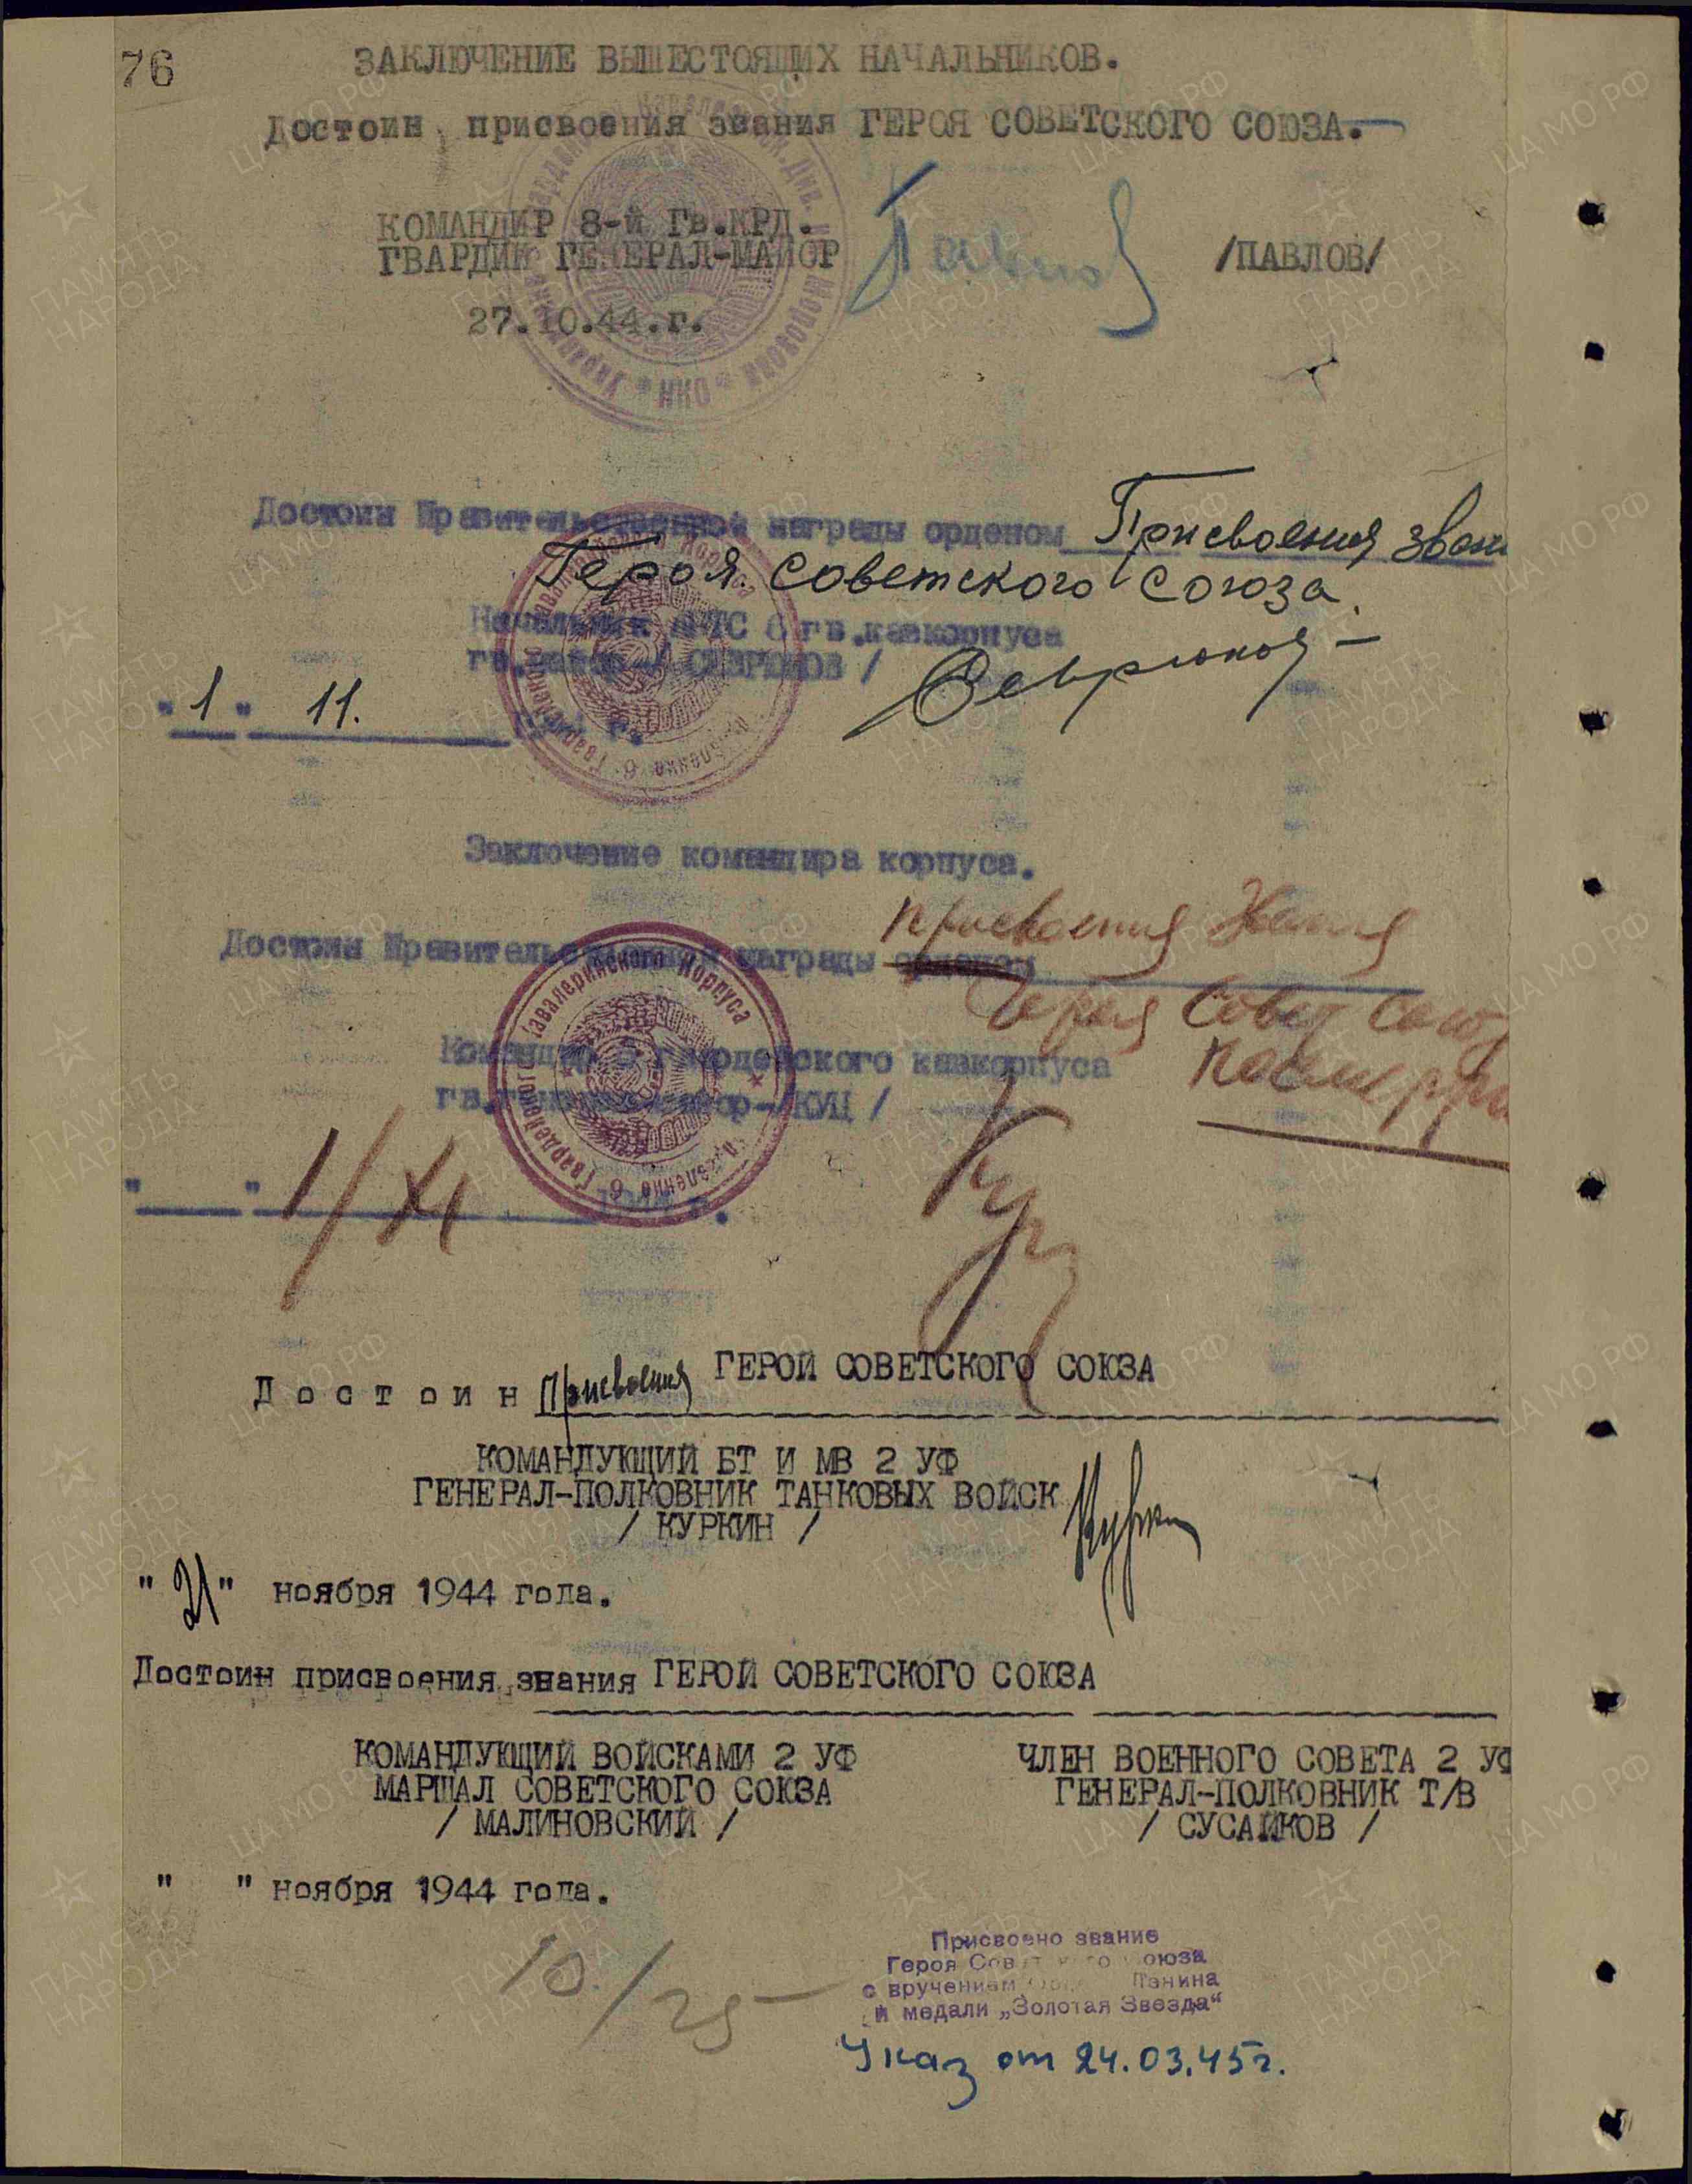 76
ЗАКЛЮЧЕНИЕ ВЫШЕСТОЯЩИХ НАЧАЛЬНИКОВ.
Достоин присвоения звания ГЕРОЯ СОВЕТСКОГО СОЮЗА.
КОМАНДИР 8-й Гв.КРД.
ГВАРДИИ ГЕНЕРАЛ-МАЙОР Павлов /ПАВЛОВ/
27.10.44.г.
Достоин Правительственной награды орденом Присвоения зван
Героя Советского Союза.
Начальник 6 гв.кавкорпуса
гв.
"1" 11. г.
Заключение командира корпуса.
Достоин Правительственной награды орденом присвоения звания
Героя Совет Союз
посмертн
Командир 6 гвардейского кавкорпуса
гв. майор-/КУЦ/
" " 1/XI
Достоин присвоения ГЕРОЙ СОВЕТСКОГО СОЮЗА
КОМАНДУЮЩИЙ БТ И МВ 2 УФ
ГЕНЕРАЛ-ПОЛКОВНИК ТАНКОВЫХ ВОЙСК
/ КУРКИН /
"21" ноября 1944 года.
Достоин присвоения звания ГЕРОЙ СОВЕТСКОГО СОЮЗА
КОМАНДУЮЩИЙ ВОЙСКАМИ 2 УФ
МАРШАЛ СОВЕТСКОГО СОЮЗА
/ МАЛИНОВСКИЙ /
ЧЛЕН ВОЕННОГО СОВЕТА 2 УФ
ГЕНЕРАЛ-ПОЛКОВНИК Т/В
/ СУСАЙКОВ /
" " ноября 1944 года.
10/25
Присвоено звание
Героя Советского Союза
с вручением Ленина
и медали „Золотая Звезда“
Указ от 24.03.45г.